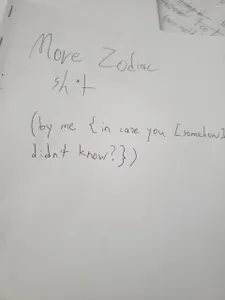 More Zodiac
sh*t
(by me {in case you [somehow]
didn't know?})